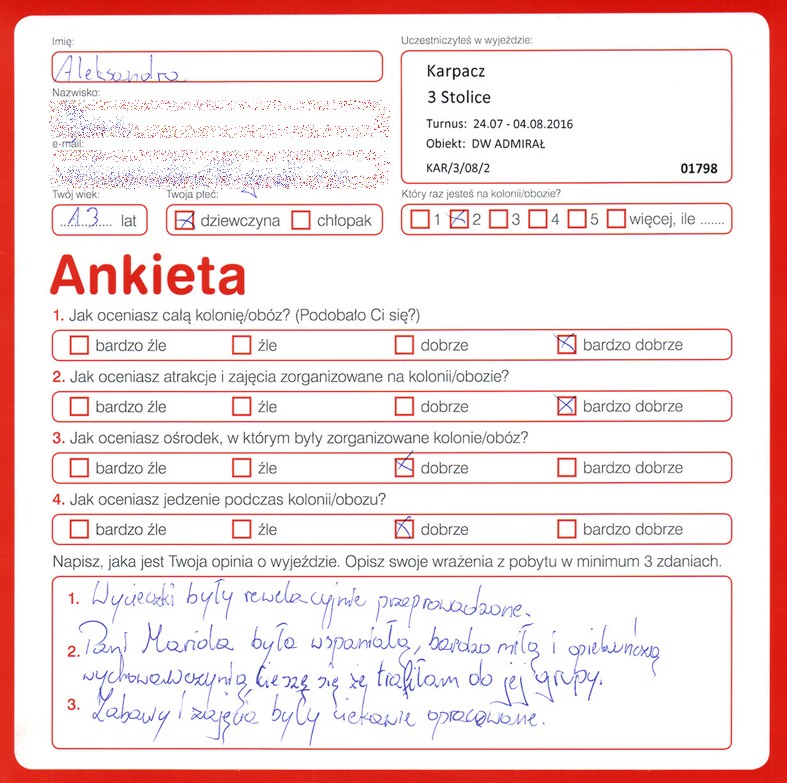 Imię:
Aleksandra
Nazwisko:
e-mail:
Twój wiek:
13 lat
Twoja płeć:
dziewczyna chłopak
Uczestniczyłeś w wyjeździe:
Karpacz
3 Stolice
Turnus: 24.07 - 04.08.2016
Obiekt: DW ADMIRAŁ
KAR/3/08/2 01798
Który raz jesteś na kolonii/obozie?
1 2 3 4 5 więcej, ile .......
Ankieta
1. Jak oceniasz całą kolonię/obóz? (Podobało Ci się?)
bardzo źle źle dobrze bardzo dobrze
2. Jak oceniasz atrakcje i zajęcia zorganizowane na kolonii/obozie?
bardzo źle źle dobrze bardzo dobrze
3. Jak oceniasz ośrodek, w którym były zorganizowane kolonie/obóz?
bardzo źle źle dobrze bardzo dobrze
4. Jak oceniasz jedzenie podczas kolonii/obozu?
bardzo źle źle dobrze bardzo dobrze
Napisz, jaka jest Twoja opinia o wyjeździe. Opisz swoje wrażenia z pobytu w minimum 3 zdaniach.
1. Wycieczki były rewelacyjnie przeprowadzone.
2. Pani Mariola była wspaniałą, bardzo miłą i opiekuńczą
wychowawczynią, cieszę się że trafiłam do jej grupy.
3. Zabawy i zajęcia były ciekawie opracowane.